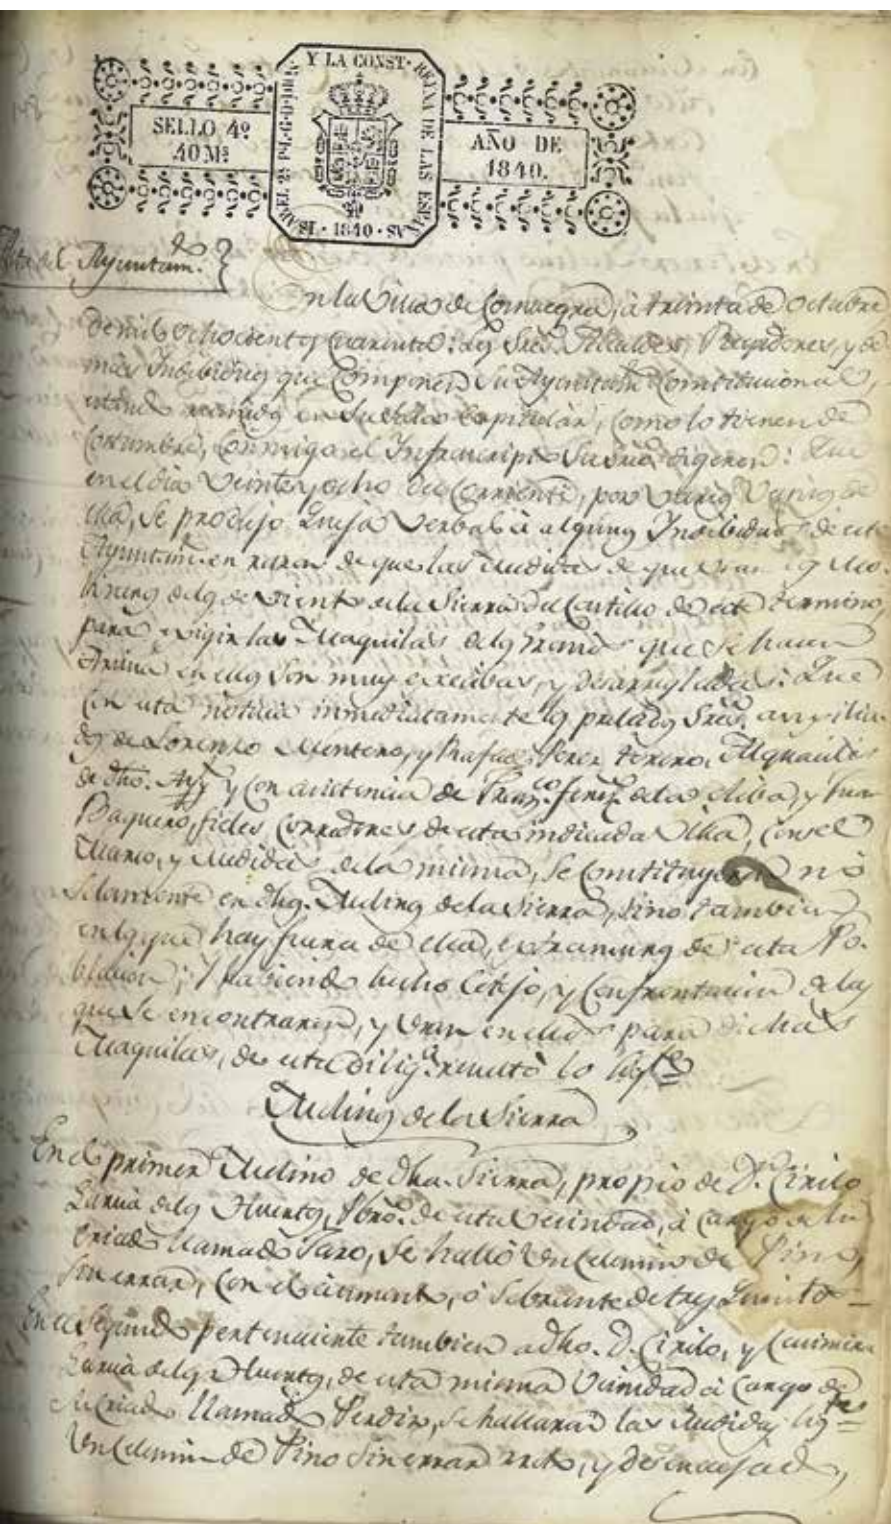 SELLO 4º
40 Mˢ
ISABEL 2ª P. L. G. D. DIOS Y LA CONST. REYNA DE LAS ESPAÑAS · 1840 ·
AÑO DE
1840.
del Ayuntam.do
En la Villa de Consuegra, a treinta de Octubre
de mil ochocientos cuarenta: Los Sres. Alcaldes, Regidores, y de
mas Indibiduos que componen su Ayuntam.to Constitucional,
estando reunidos en su Sala Capitular, como lo tienen de
Costumbre, conmigo el Infrascripto Secrio. digeron: Que
en el dia veinte y ocho del corriente, por varios vecinos de
ella, se produjo queja verbal à algunos Indibiduos de este
Ayuntam.to en razon de que las medidas de que usan los Mo-
lineros de los de viento de la Sierra del Castillo de este termino,
para exigir las Maquilas de los Granos que se hacen
Arina en ellos son muy excesibas, y desarregladas: Que
con esta noticia inmediatamente los prelados Sres. auxilia-
dos de Lorenzo Montero, y Rafael Perez Alguaciles
de dho. Ayto. y con asistencia de Franco. Fernz. de la y Juan
Baquero, fieles Corredores de esta indicada Villa, con el
Marco, y Medidas de la misma, se Constituyeron nó
solamente en dhos. Molinos de la Sierra, sino tambien
en los que hay fuera de ella, extramuros de esta Po-
blacion; Y habiendo hecho Cotejo, y Confrontacion de las
que se encontraron, y usan en ellos para dichas
Maquilas, de esta dilig.a resultó lo sig.te
Molinos de la Sierra
En el primer Molino de dha. Sierra, propio de D.n Cirilo
Garcia de los Huertos, Pbro. de esta vecindad, à cargo de su
Criado llamado se halló un Celemin de Pino,
sin errar, con el aumento, o sobrante de tres quintos
En el segundo perteneciente tambien a dho. D. Cirilo, y Casimiro
Garcia de los Huertos, de esta misma vecindad à cargo de
su Criado llamado se hallaron las Medidas sig.tes
Un Celemin de Pino sin errar roto, y desencajado,